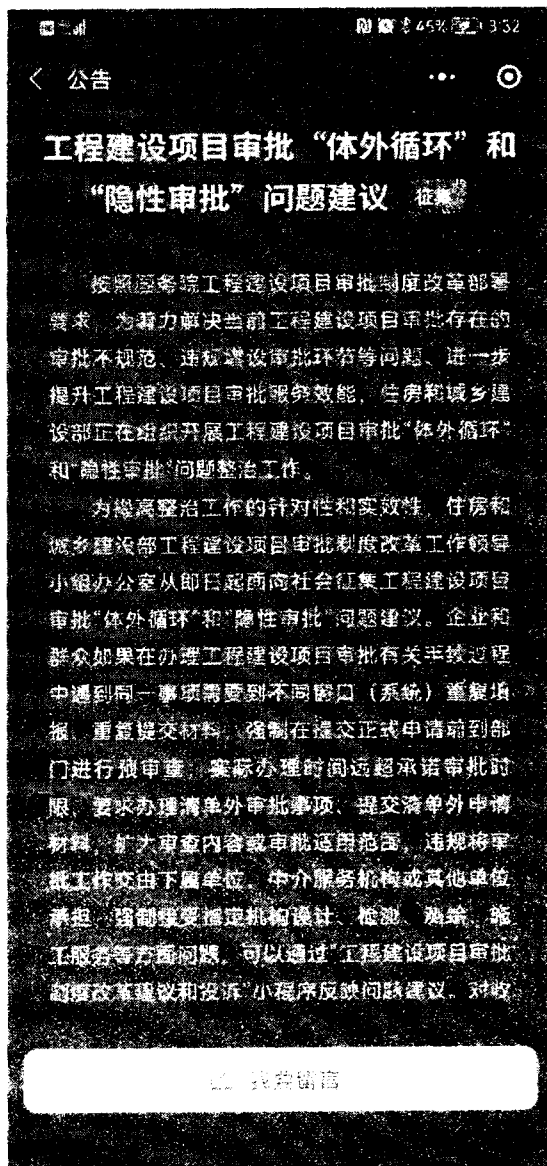 45% 3:32
公告
工程建设项目审批“体外循环”和
“隐性审批”问题建议 征集
按照国务院工程建设项目审批制度改革部署
要求，为着力解决当前工程建设项目审批存在的
审批不规范、违规增设审批环节等问题、进一步
提升工程建设项目审批服务效能，住房和城乡建
设部正在组织开展工程建设项目审批“体外循环”
和“隐性审批”问题整治工作。
为提高整治工作的针对性和实效性，住房和
城乡建设部工程建设项目审批制度改革工作领导
小组办公室从即日起面向社会征集工程建设项目
审批“体外循环”和“隐性审批”问题建议。企业和
群众如果在办理工程建设项目审批有关手续过程
中遇到同一事项需要到不同窗口（系统）重复填
报、重复提交材料，强制在提交正式申请前到部
门进行预审查，实际办理时间远超承诺审批时
限，要求办理清单外审批事项、提交清单外申请
材料，扩大审查内容或审批适用范围，违规将审
批工作交由下属单位、中介服务机构或其他单位
承担，强制接受指定机构设计、检测、测绘、施
工服务等方面问题，可以通过“工程建设项目审批
制度改革建议和投诉”小程序反映问题建议。对收
我要留言